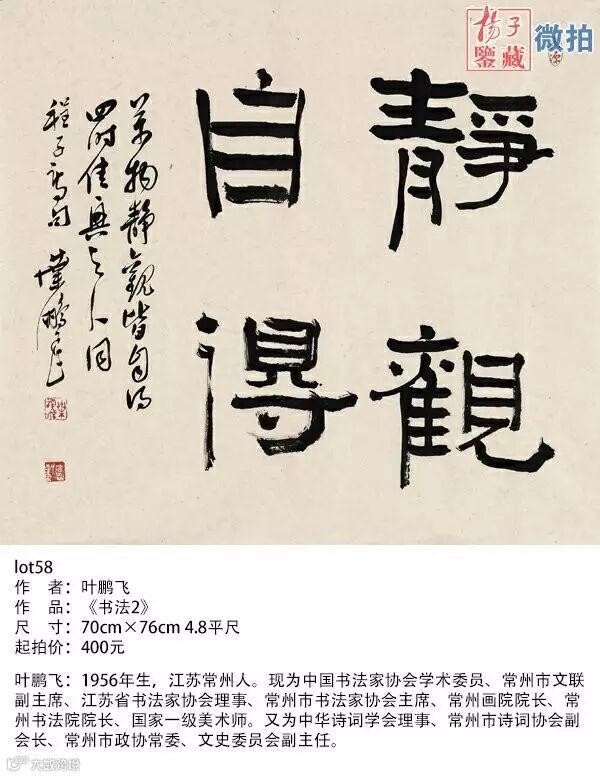 楊子
鑒藏
微拍
靜觀
自得
萬物靜觀皆自得
四时佳興与人同
程子詩句 葉鵬飛
lot58
作 者：叶鹏飞
作 品：《书法2》
尺 寸：70cm×76cm 4.8平尺
起拍价：400元
叶鹏飞：1956年生，江苏常州人。现为中国书法家协会学术委员、常州市文联
副主席、江苏省书法家协会理事、常州市书法家协会主席、常州画院院长、常
州书法院院长、国家一级美术师。又为中华诗词学会理事、常州市诗词协会副
会长、常州市政协常委、文史委员会副主任。